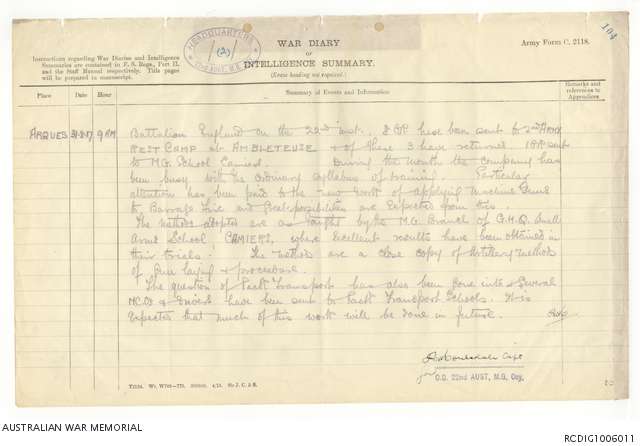 104
HEADQUARTERS
(2)
WAR DIARY
Army Form C. 2118.
OF
INTELLIGENCE SUMMARY.
(Erase heading not required.)
Instructions regarding War Diaries and Intelligence
Summaries are contained in F. S. Regs., Part II.
and the Staff Manual respectively. Title pages
will be prepared in manuscript.
Place Date Hour Summary of Events and Information Remarks and references to Appendices
ARQUES 9 PM Battalion England on the 22nd inst. 8 OR have been sent to 2nd ARMY
REST CAMP at AMBLETEUSE & of these 3 have returned 1 OR sent
to M.G. School Camiers. During the month the company has
been busy with the ordinary syllabus of training. Particular
attention has been paid to the new work of applying Machine Guns
to Barrage Fire and Great possibilities are expected from this.
The methods adopted are as taught by the M.G. Branch of G.H.Q. Small
Arms School CAMIERS, where excellent results have been obtained in
their trials. The methods are a close copy of Artillery methods
of Gun laying & procedure.
The question of Pack Transport has also been gone into & several
NCOs & Drivers have been sent to Pack Transport Schools. It is
expected that much of this work will be done in future.
Capt
O.C. 22ND AUST. M.G. Coy.
AUSTRALIAN WAR MEMORIAL
RCDIG1006011